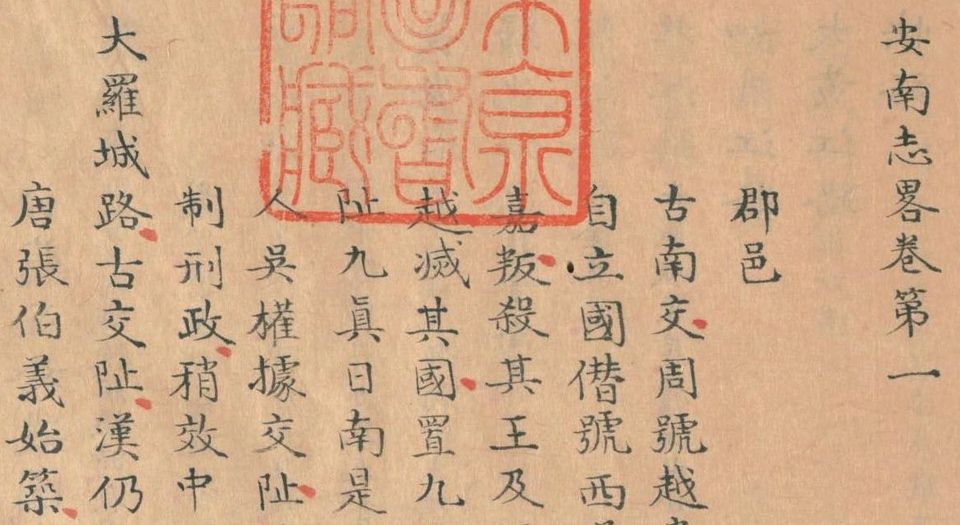 安南志畧巻第一
郡邑
古南交周號越
自立國僣號西
嘉叛殺其王及
越滅其國置九
阯九眞日南是
人吳權據交阯
制刑政稍效中
大羅城路古交阯漢仍
唐張伯義始築